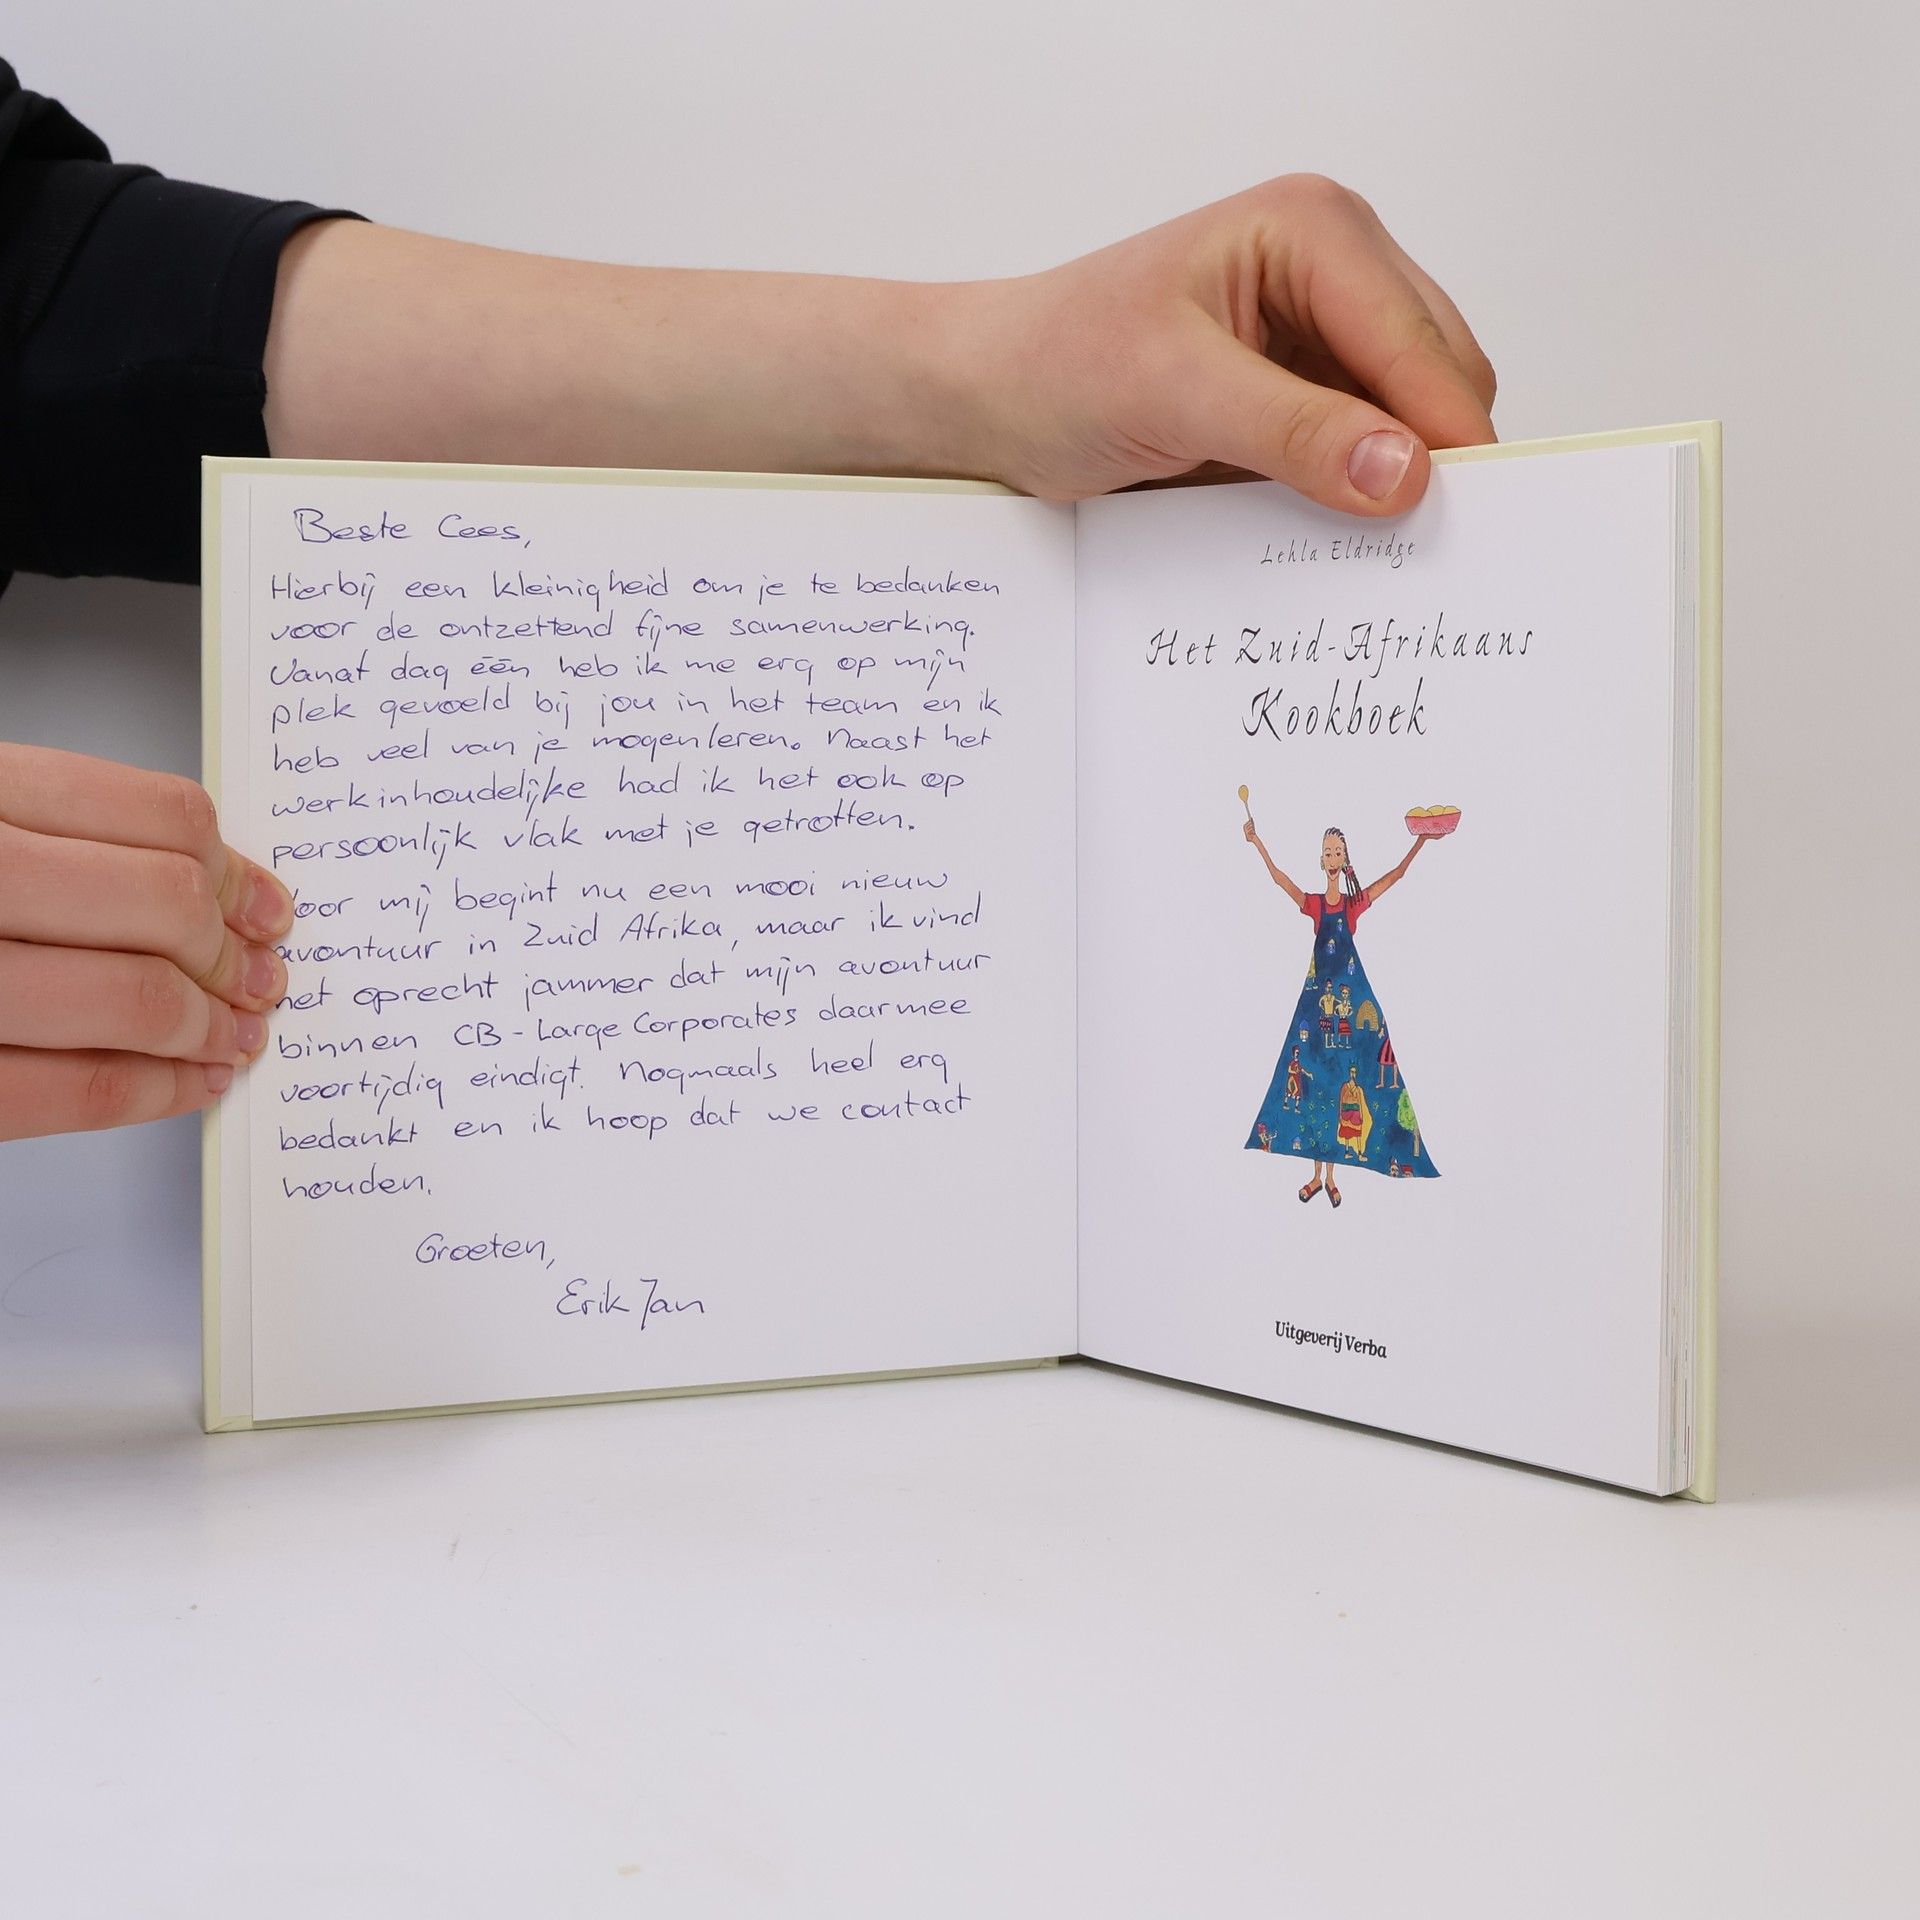 Beste Cees,
Hierbij een kleinigheid om je te bedanken
voor de ontzettend fijne samenwerking.
Vanaf dag één heb ik me erg op mijn
plek gevoeld bij jou in het team en ik
heb veel van je mogen leren. Naast het
werkinhoudelijke had ik het ook op
persoonlijk vlak met je getroffen.
Voor mij begint nu een mooi nieuw
avontuur in Zuid Afrika, maar ik vind
het oprecht jammer dat mijn avontuur
binnen CB - Large Corporates daarmee
voortijdig eindigt. Nogmaals heel erg
bedankt en ik hoop dat we contact
houden.
Groeten,
Erik Jan
Lehla Eldridge
Het Zuid-Afrikaans
Kookboek
Uitgeverij Verba